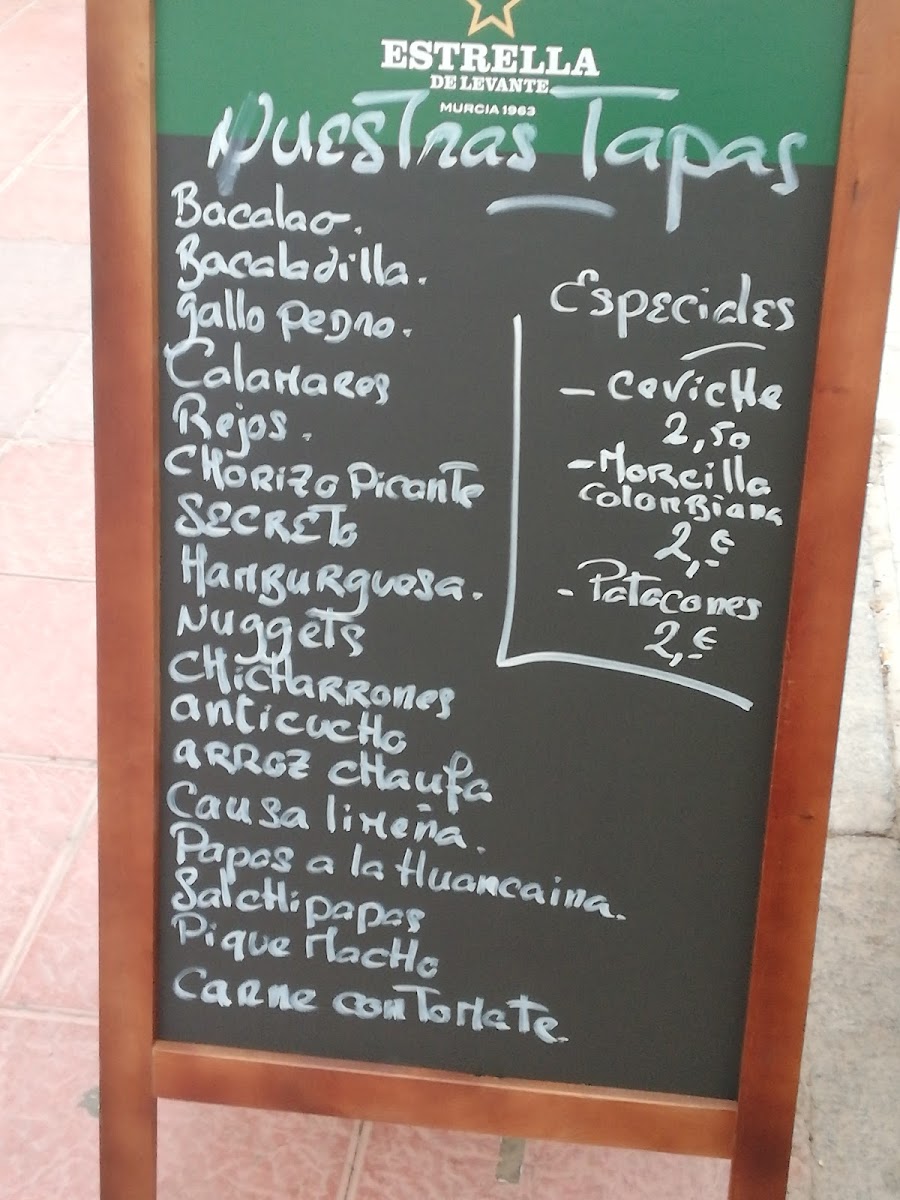 ESTRELLA
DE LEVANTE
MURCIA 1963
Nuestras Tapas
Bacalao.
Bacaladilla.
gallo Pedro.
Calamares
Rejos.
CHORIZO Picante
SECRETO
HAMBURGUESA.
Nuggets
CHICHARRONES
anticucho
ARROZ CHAUFA
Causa limeña.
Papas a la Huancaina.
Salchipapas
Pique Macho
Carne con Tomate.
Especiales
- Ceviche
2,50
- Morcilla
Colombiana
2,-€
- Patacones
2,-€